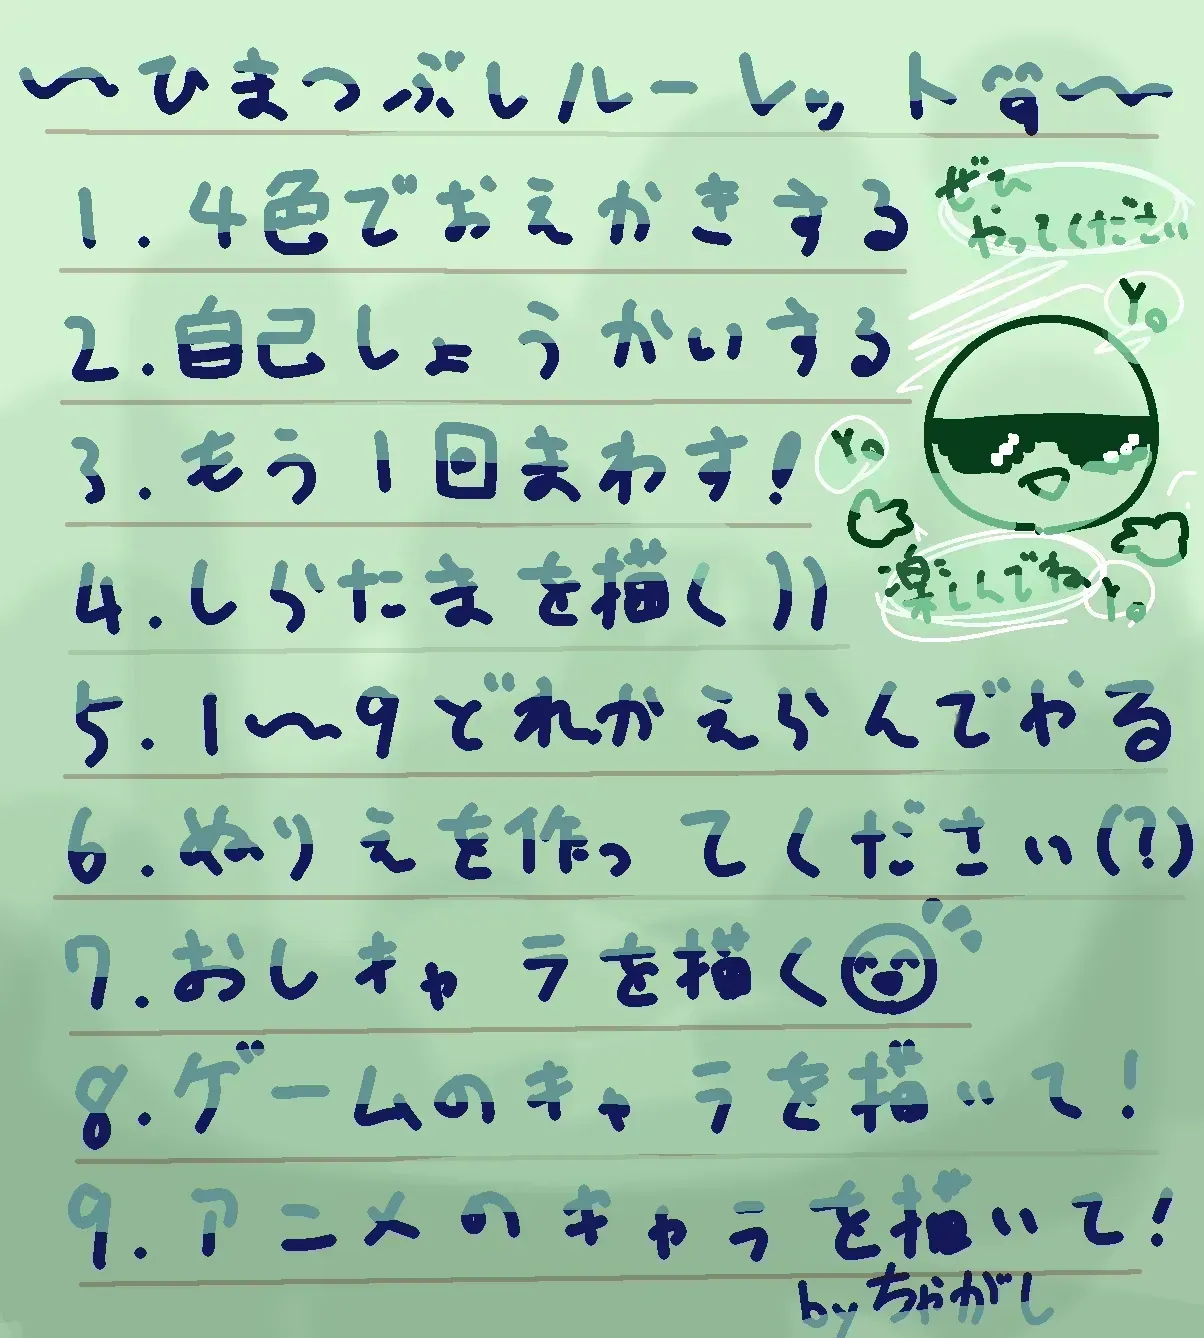 〜ひまつぶしルーレット〜
1. 4色でおえかきする
ぜひ
やってください
2. 自己しょうかいする
Yo
3. もう1回まわす!
Yo
4. しらたまを描く))
楽しんでね
Yo
5. 1〜9どれかえらんでやる
6. ぬりえを作ってください(?)
7. おしキャラを描く
8. ゲームのキャラを描いて!
9. アニメのキャラを描いて!
by ちゃがし